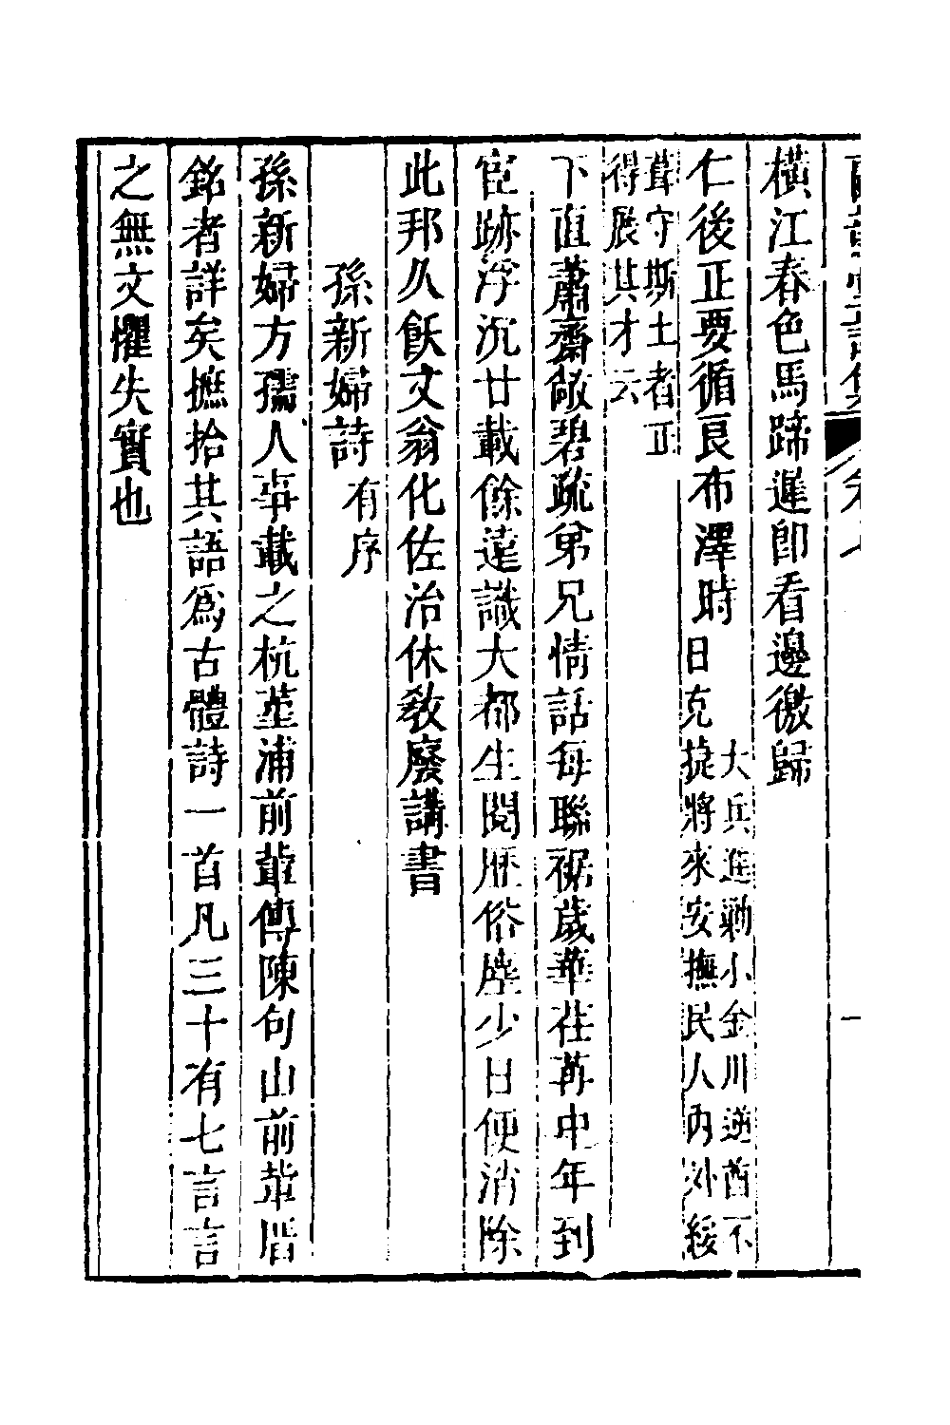 橫江春色馬蹄遲即看邊徼歸
仁後正要循良布澤時
大兵進勦小金川逆酋不
日克捷將來安撫民人內外綏
葺守斯土者正
得展其才云
下直蕭齋敞碧疏弟兄情話每聯裾歲華荏苒中年到
宦跡浮沉廿載餘遠識大都生閱歷俗塵少日便消除
此邦久飫文翁化佐治休教廢講書
孫新婦詩有序
孫新婦方孺人事載之杭堇浦前輩傳陳句山前輩厝
銘者詳矣摭拾其語爲古體詩一首凡三十有七言言
之無文懼失實也